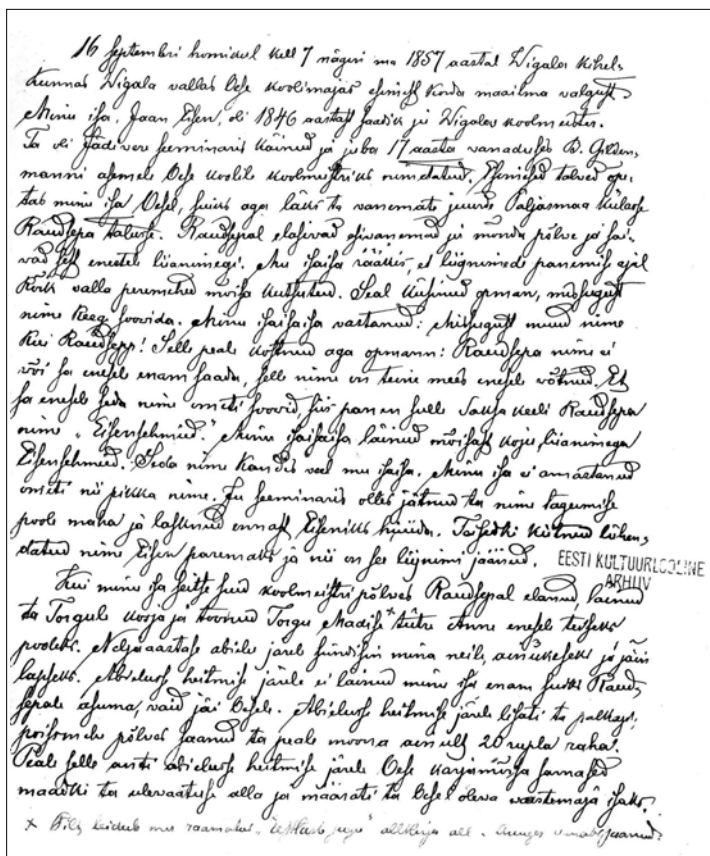 16 septembri homikul kell 7 nägin ma 1857 aastal Wigala kihel-
kunnas Wigala vallas Oese koolimajas esimest korda maailma valgust.
Minu isa, Jaan Eisen, oli 1846 aastast saadik ju Wigalas koolmeister.
Ta oli Jädivere seminaris käinud ja juba 17 aasta vanaduses B. Gilden-
manni asemele Oese koolile koolmeistriks nimetatud. Esimesed talved ope-
tas minu isa Oesel, suiks aga läks ta vanemate juurde Paljasmaa külasse
Raudsepa talusse. Raudsepal elasivad esivanemad ju mõnda põlve ja sai-
vad sest enestele liianimegi. Mu isaisa rääkis, et liignimede panemise ajal
kõik valla peremehed mõisa kutsutud. Seal küsinud opman, missugust
nime keegi soovida. Minu isaisaisa vastanud: Missugust muud nime
kui Raudsepp! Selle peale kostnud aga opmann: Raudsepa nime ei
või sa enesele enam saada, selle nime on teine mees enesele võtnud. Et
sa enesele seda nime ometi soovid, siis panen sulle Saksa keeli Raudsepa
nime „Eisenschmied." Minu isaisaisa läinud mõisast koju, liianimega
Eisenschmied. Seda nime kandis veel mu isaisa. Minu isa ei armastanud
ometi nii pikka nime. Ju seminaris olles jätnud ta nime tagumise
poole maha ja lasknud ennast Eiseniks hüüda. Taisedki kiitnud lühen-
datud nime Eisen paremaks ja nii on see liignimi jäänud.
EESTI KULTUURLOOLINE
ARHIIV
Kui minu isa seitse suud koolmeistri põlves Raudsepal elanud, läinud
ta Torgule kosja ja toonud Torgu Madise * tütre Anne enesele teiseks
pooleks. Neljaaastase abielu järele sündisin mina neile, ainukeseks ja jäin
lapseks. Abielusse heitmise järele ei läinud minu isa enam suiks Raud-
sepale asuma, vaid jäi Oesele. Abielusse heitmise järele lisati ta palka;
poismehe põlves saanud ta peale moona ainult 20 rupla raha.
Peale selle anti abielusse heitmise järele Oese karjamõisa sarnased
maadki ta ülevaatuse alla ja määrati ta Oesel oleva vaestemaja isaks.
x Pilt leidub mu raamatus allkirja all.